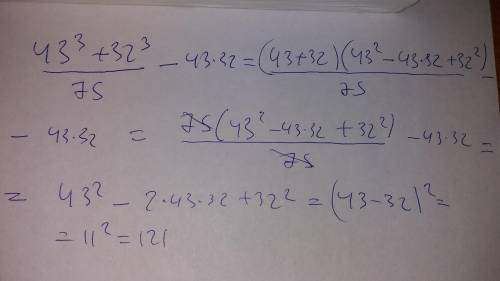 (43³+32³)/75 − 43·32 = (43+32)(43²−43·32+32²)/75 −
− 43·32 = 75(43²−43·32+32²)/75 − 43·32 =
= 43² − 2·43·32+32² = (43−32)² =
= 11² = 121